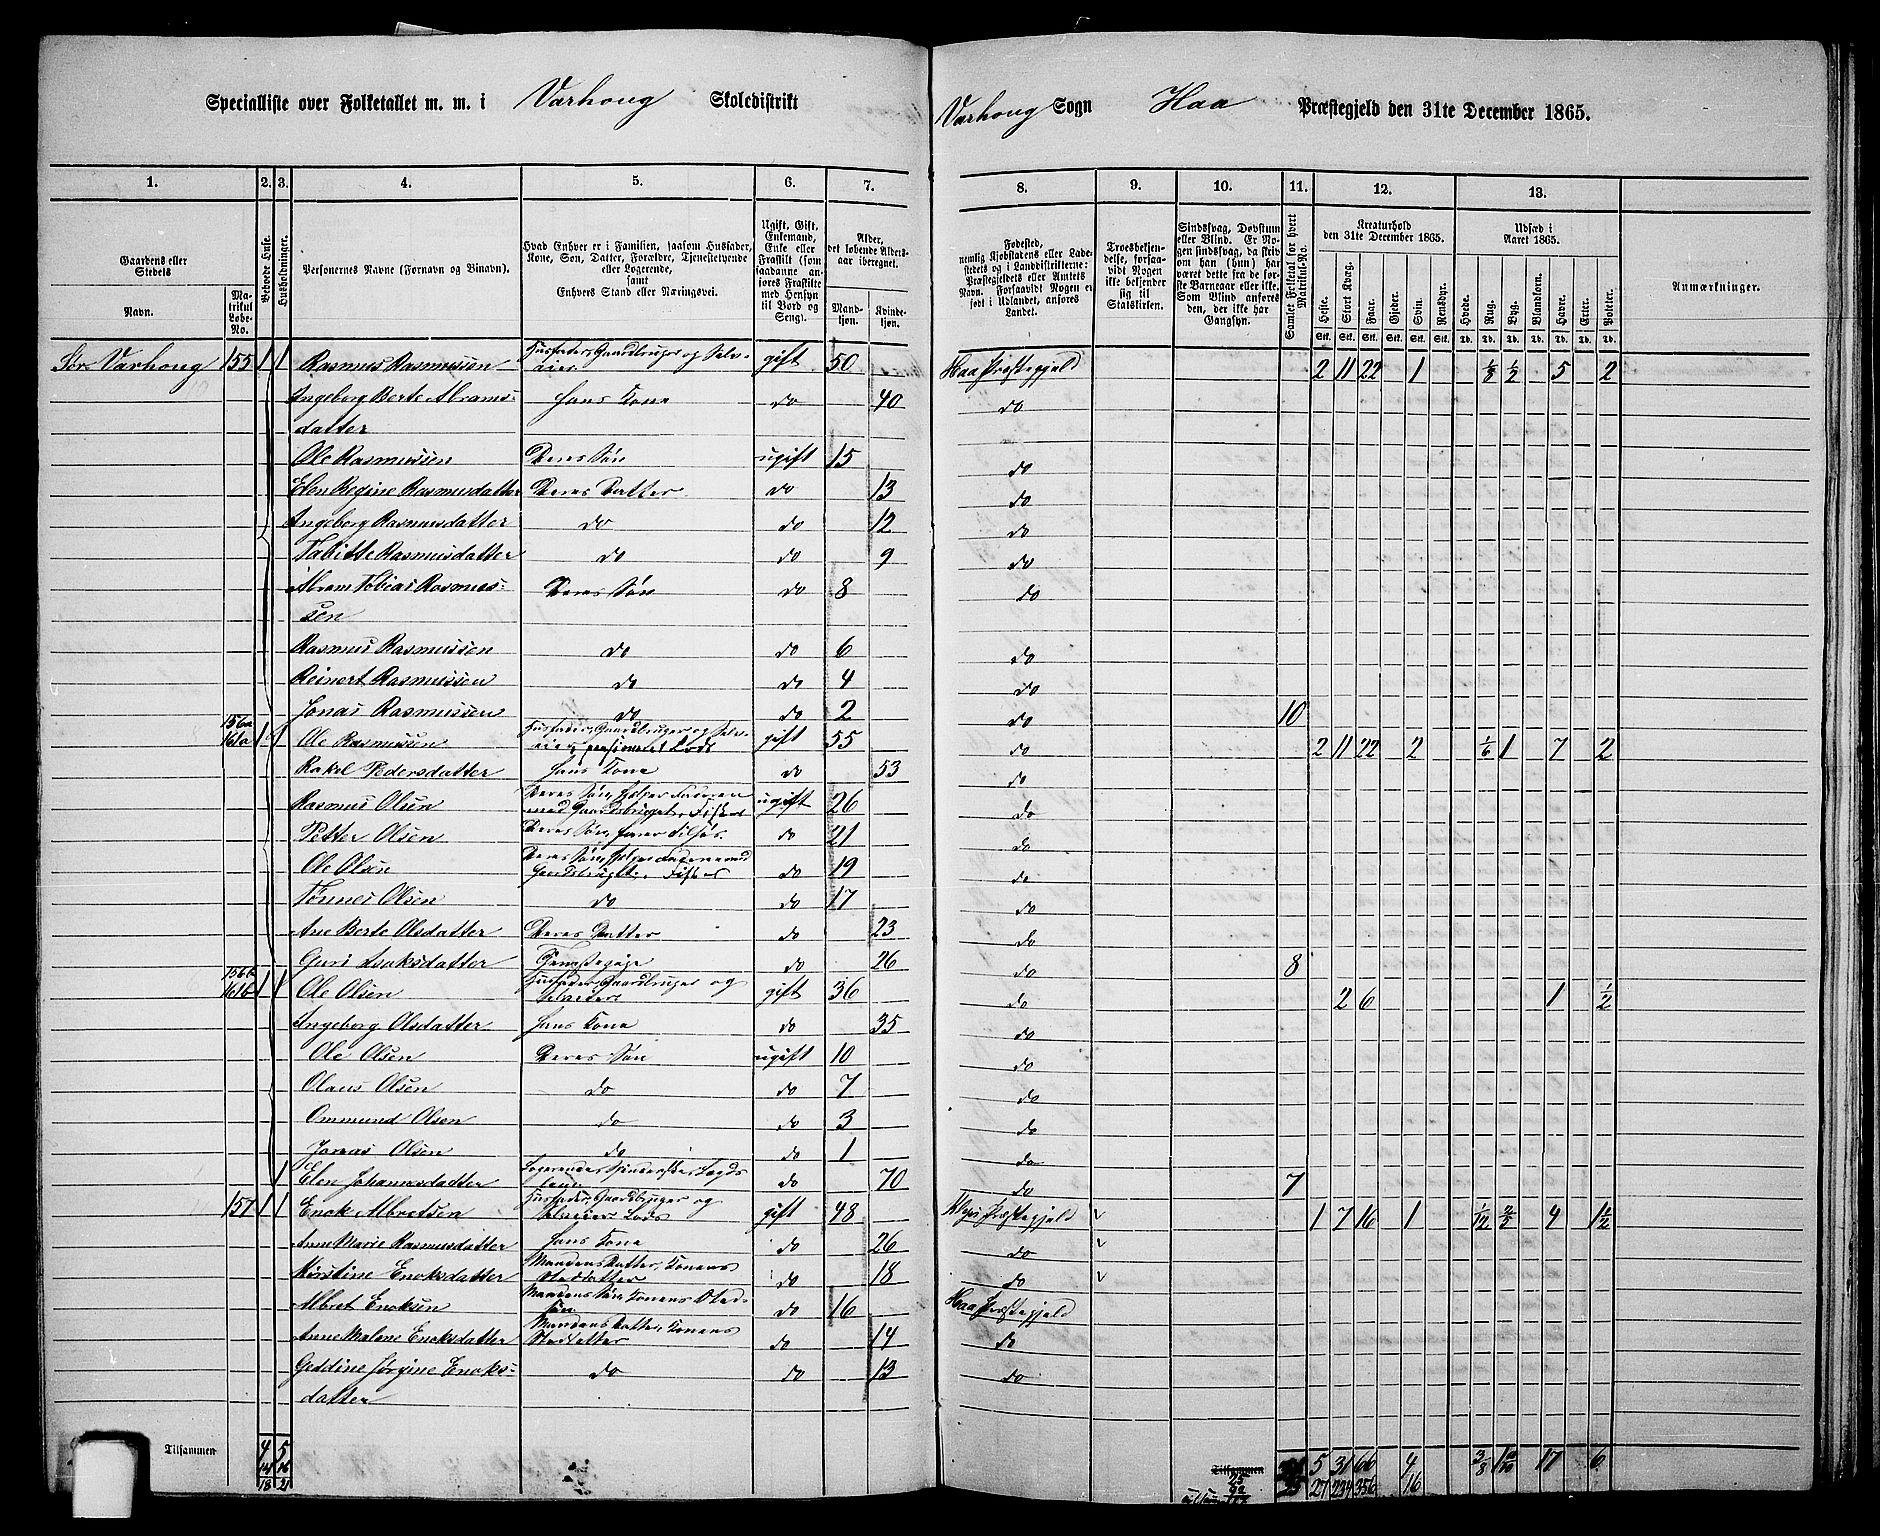 Specialliste over Folketallet m. m. i Varhoug Skoledistrikt
Varhoug Sogn Haa Præstegjeld den 31te December 1865.
1. 2. 3. 4. 5. 6. 7. 8. 9. 10. 11. 12. 13.
Gaardens eller Stedets
Navn.
Matrikul Løbe-No.
Beboede Huse.
Husholdninger.
Personernes Navne (Fornavn og Binavn).
Hvad Enhver er i Familien, saasom Husfader, Kone, Søn, Datter, Forældre, Tjenestetyende eller Logerende, samt Enhvers Stand eller Næringsvei.
Ugift, Gift, Enkemand, Enke eller Fraskilt (som saadanne anføres Fraskilte med Hensyn til Bord og Seng).
Alder, det løbende Aldersaar iberegnet.
Mandkjøn. Kvindekjøn.
Fødested, nemlig Kjøbstadens eller Ladestedets og i Landdistrikterne: Præstegjeldets eller Amtets Navn. Forsaavidt Nogen er født i Udlandet, anføres Landet.
Troesbekjendelse, forsaavidt Nogen ikke bekjender sig til Statskirken.
Sindssvag, Døvstum eller Blind. Er Nogen sindssvag, da skriv om han (hun) har været dette fra de første Barneaar eller ikke. Som Blind anføres den, der ikke har Gangsyn.
Samlet Folketal for hvert Matrikul-No.
Kreaturhold den 31te December 1865.
Heste. Stort Kvæg. Faar. Gjeder. Svin. Rensdyr.
Udsæd i Aaret 1865.
Hvede. Rug. Byg. Blandkorn. Havre. Erter. Poteter.
Anmærkninger.
Sør Varhoug 155 1 1 Rasmus Rasmussen Husfader, Gaardbruger og Selveier gift 50 Haa Præstegjeld 2 11 22 1 1/8 1/2 5 2
Ingeborg Berte Abramsdatter hans Kone do 40 do
Ole Rasmussen Deres Søn ugift 15 do
Elen Regine Rasmusdatter Deres Datter do 13 do
Ingeborg Rasmusdatter do do 12 do
Tabitte Rasmusdatter do do 9 do
Abram Tobias Rasmussen Deres Søn do 8 do
Rasmus Rasmussen do do 6 do
Reinert Rasmussen do do 4 do
Jonas Rasmussen do do 2 do 10
156a 161a 1 1 Ole Rasmussen Husfader, Gaardbruger og Selveier, pensioneret Lods gift 55 do 2 11 22 2 1/6 1 7 2
Rakel Pedersdatter hans Kone do 53 do
Rasmus Olsen Deres Søn, hjelper Faderen med Gaardsbruget, Fisker ugift 26 do
Petter Olsen Deres Søn, farer Tilsøs do 21 do
Ole Olsen Deres Søn, hjelper Faderen med Gardsbruget, Fisker do 19 do
Tønnes Olsen do do 17 do
Ane Berte Olsdatter Deres Datter do 23 do
Guri Isaksdatter Tjenestepige do 26 do 8
156b 161b 1 1 Ole Olsen Husfader, Gaardbruger og Selveier gift 36 do 2 6 1 1/2
Ingeborg Olsdatter hans Kone do 35 do
Ole Olsen Deres Søn ugift 10 do
Olaus Olsen do do 7 do
Ommund Olsen do do 3 do
Jonas Olsen do do 1 do
1 Elen Johannesdatter Logerende do 70 do 7
157 1 1 Enok Albretsen Husfader, Gaardbruger og Selveier Lods gift 48 Klep Præstegjeld 1 7 16 1 1/12 2/5 4 1 1/2
Anne Marie Rasmusdatter hans Kone do 26 do
Kirstine Enoksdatter Mandens Datter, Konens Steddatter do 18 do
Albret Enoksen Mandens Søn, Konens Stedsøn do 16 Haa Præstegjeld
Anne Malene Enoksdatter Mandens Datter, Konens Steddatter do 14 do
Geddine Jørgine Enoksdatter do do 13 do
Tilsammen 4 5 Tilsammen 5 31 66 4 3/8 17 6
14 16
18 21 27 234 356 16